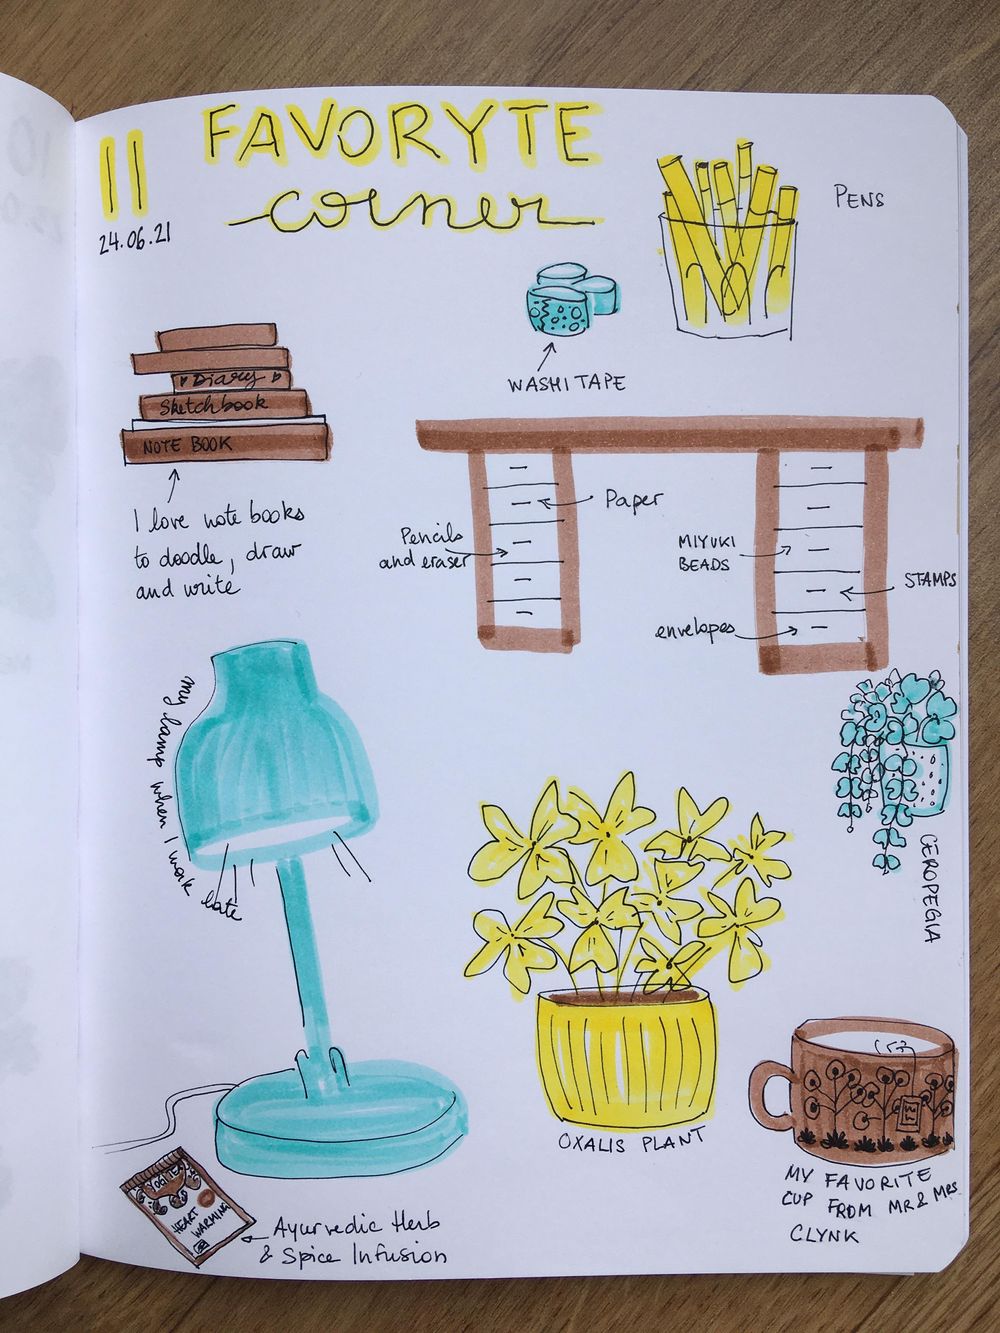 11
FAVORYTE
corner
24.06.21
PENS
WASHI TAPE
Diary
Sketchbook
NOTE BOOK
I love note books
to doodle, draw
and write
Paper
Pencils
and eraser
MIYUKI
BEADS
STAMPS
envelopes
my lamp when I work late
CEROPEGIA
OXALIS PLANT
MY FAVORITE
CUP FROM MR & MRS
CLYNK
YOGI TEA
HEART
WARMING
Ayurvedic Herb
& Spice Infusion